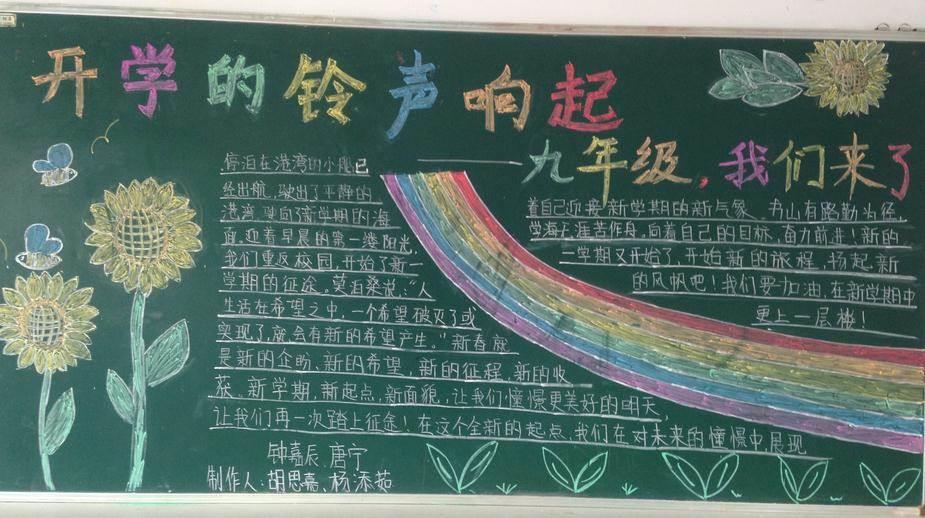 开学的铃声响起
九年级,我们来了
停泊在港湾的小船已
经出航,驶出了平静的
港湾,驶向新学期的海
面,迎着早晨的第一缕阳光,
我们重返校园,开始了新一
学期的征途。莫泊桑说:“人
生活在希望之中,一个希望破灭了或
实现了,就会有新的希望产生。”新春就
是新的企盼、新的希望,新的征程,新的收
获、新学期,新起点,新面貌,让我们憧憬更美好的明天,
让我们再一次踏上征途!在这个全新的起点,我们在对未来的憧憬中,展现
着自己迎接新学期的新气象。书山有路勤为径,
学海无涯苦作舟,向着自己的目标,奋力前进!新的
一学期又开始了,开始新的旅程,扬起新
的风帆吧!我们要加油,在新学期中
更上一层楼!
钟嘉辰、唐宁
制作人:胡思嘉、杨添茹